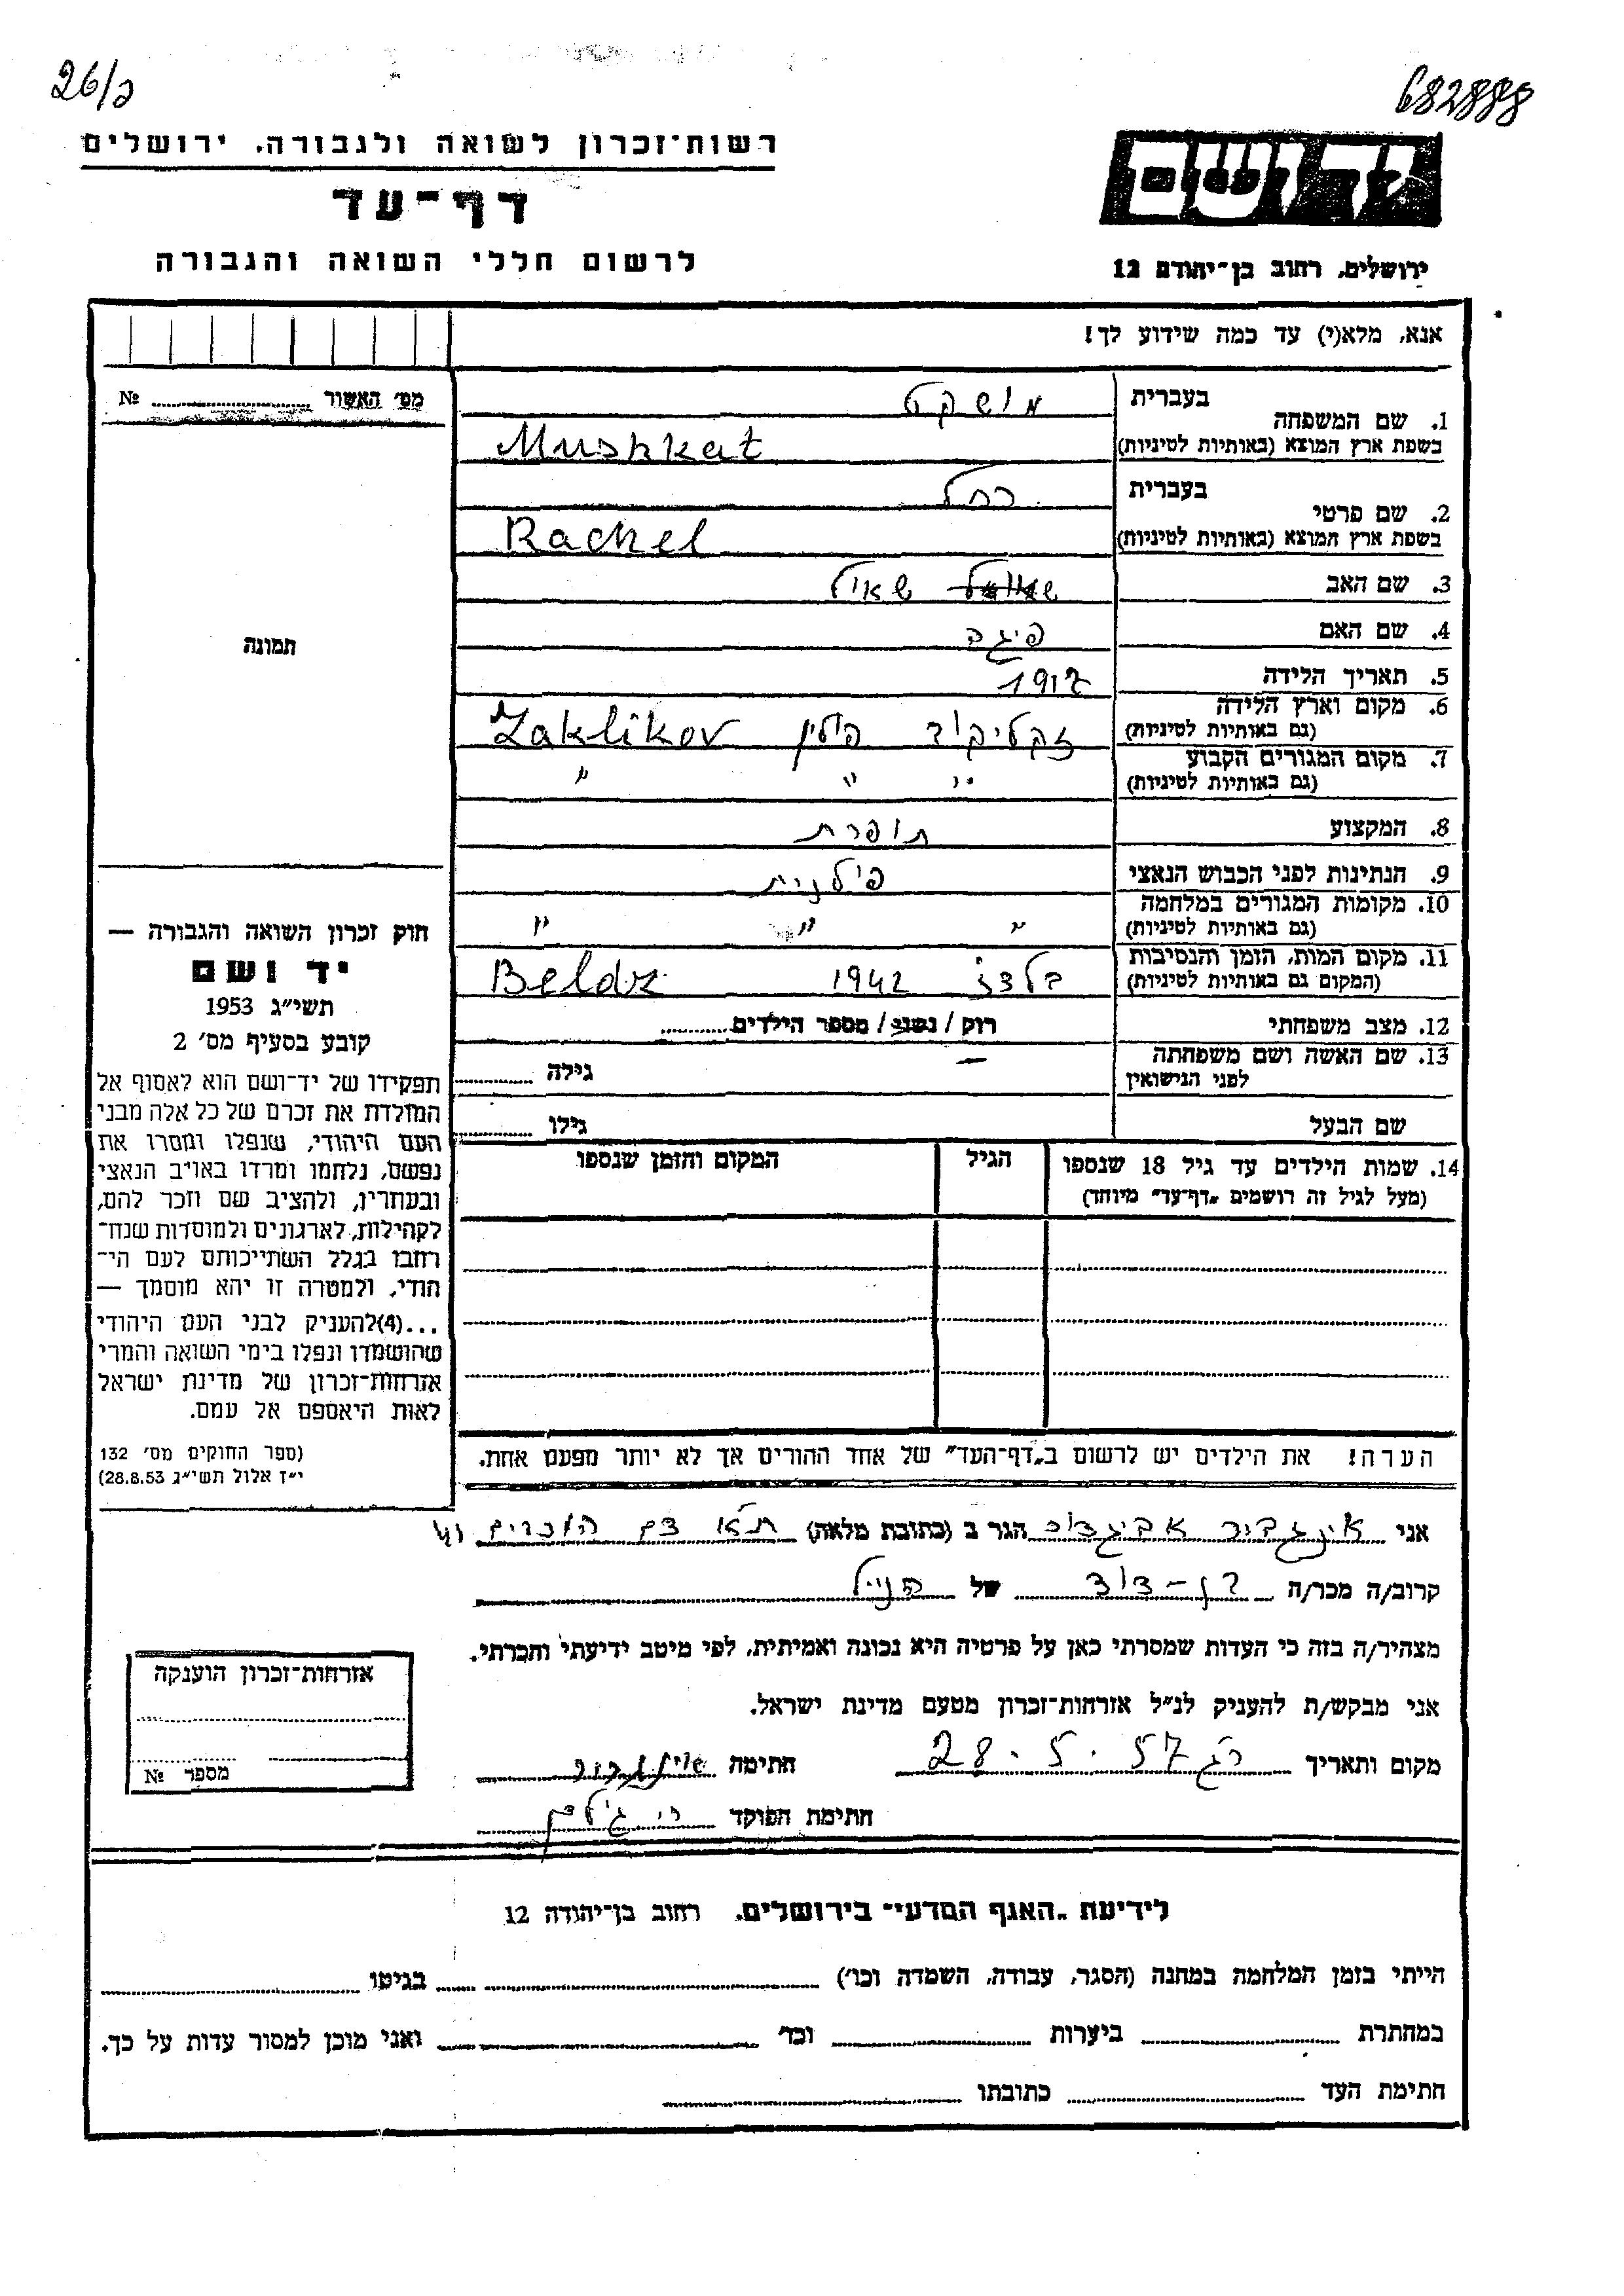 26/כ
682888
רשות־זכרון לשואה ולגבורה. ירושלים
דף־עד
לרשום חללי השואה והגבורה
ידושם
ירושלים, רחוב בן־יהודה 12
אנא, מלא(י) עד כמה שידוע לך!
מס׳ האשור № 
1. שם המשפחה
בעברית מושקט
בשפת ארץ המוצא (באותיות לטיניות) Mushkat
2. שם פרטי
בעברית רחל
בשפת ארץ המוצא (באותיות לטיניות) Rachel
3. שם האב שאול
4. שם האם פיגה
5. תאריך הלידה 1917
6. מקום וארץ הלידה זקליקוב פולין Zaklikov
(גם באותיות לטיניות)
7. מקום המגורים הקבוע " " "
(גם באותיות לטיניות)
8. המקצוע תופרת
9. הנתינות לפני הכבוש הנאצי פולנית
10. מקומות המגורים במלחמה " " "
(גם באותיות לטיניות)
11. מקום המות, הזמן והנסיבות בלזץ 1942 Beldz
(המקום גם באותיות לטיניות)
12. מצב משפחתי רוק / נשוי / מספר הילדים
13. שם האשה ושם משפחתה — גילה
לפני הנישואין
שם הבעל גילו
14. שמות הילדים עד גיל 18 שנספו הגיל המקום והזמן שנספו
(מעל לגיל זה רושמים „דף־עד" מיוחד)
הערה! את הילדים יש לרשום ב„דף־העד" של אחד ההורים אך לא יותר מפעם אחת.
תמונה
חוק זכרון השואה והגבורה —
יד ושם
תשי״ג 1953
קובע בסעיף מס׳ 2
תפקידו של יד־ושם הוא לאסוף אל
המולדת את זכרם של כל אלה מבני
העם היהודי, שנפלו ומסרו את
נפשם, נלחמו ומרדו באויב הנאצי
ובעוזריו, ולהציב שם וזכר להם,
לקהילות, לארגונים ולמוסדות שנח־
רבו בגלל השתייכותם לעם הי־
הודי, ולמטרה זו יהא מוסמך —
...(4)להעניק לבני העם היהודי
שהושמדו ונפלו בימי השואה והמרי
אזרחות־זכרון של מדינת ישראל
לאות היאספם אל עמם.
(ספר החוקים מס׳ 132
י״ז אלול תשי״ג 28.8.53)
אני אינגביר אביגדור הגר ב (כתובת מלאה) ת"א
קרוב/ה מכר/ה בן-דוד של הנ"ל
מצהיר/ה בזה כי העדות שמסרתי כאן על פרטיה היא נכונה ואמיתית, לפי מיטב ידיעתי והכרתי.
אני מבקש/ת להעניק לנ״ל אזרחות־זכרון מטעם מדינת ישראל.
מקום ותאריך רג 28.5.57 חתימה
חתימת הפוקד
אזרחות־זכרון הוענקה
מספר №
לידיעת „האגף המדעי" בירושלים. רחוב בן־יהודה 12
הייתי בזמן המלחמה במחנה (הסגר, עבודה, השמדה וכו׳) בגיטו
במחתרת ביערות וכו׳ ואני מוכן למסור עדות על כך.
חתימת העד כתובתו